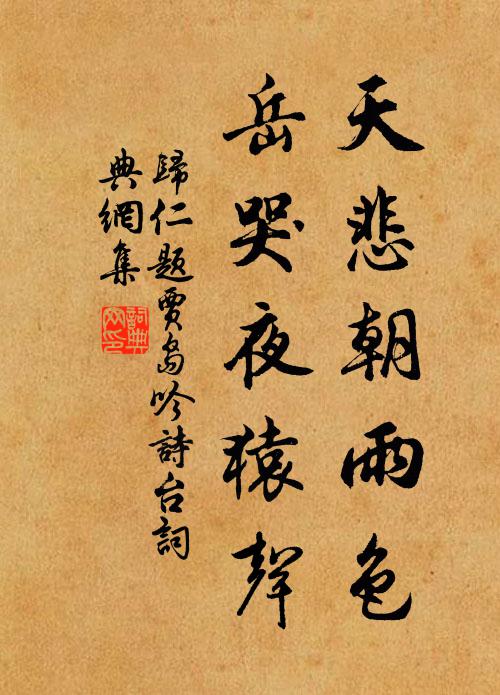 天悲朝雨色
岳哭夜猿聲
歸仁題賈島吟詩台詞
典網集
詞典網印